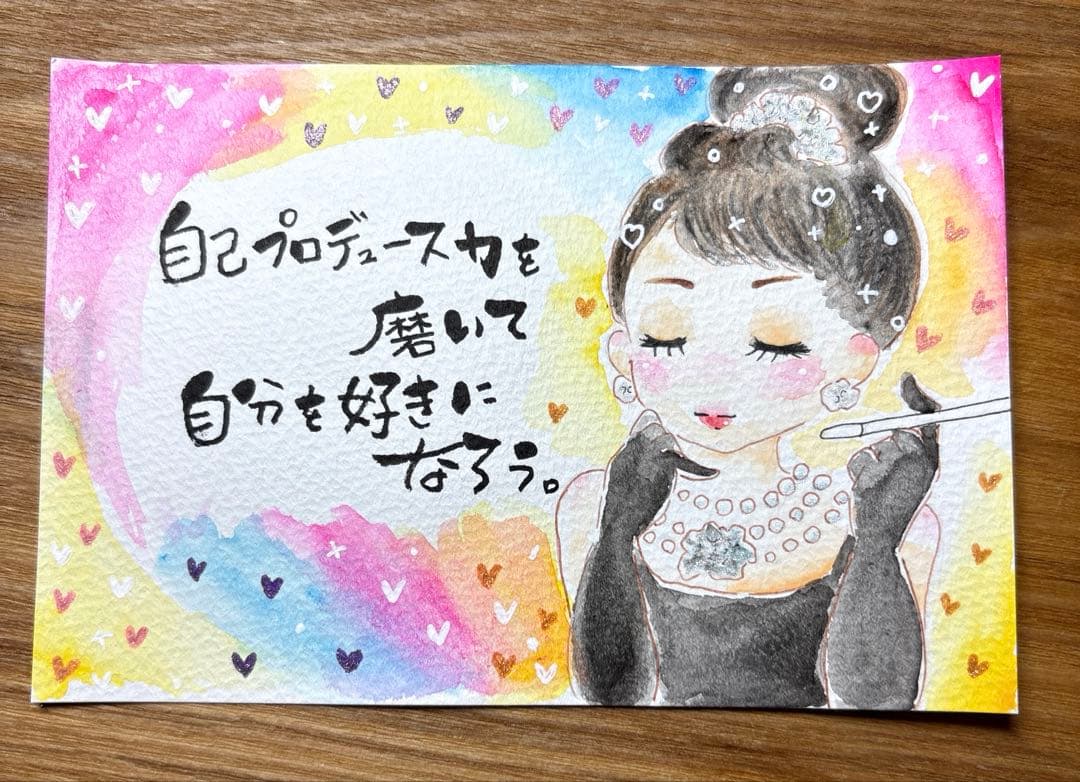 自己プロデュース力を
磨いて
自分を好きに
なろう。